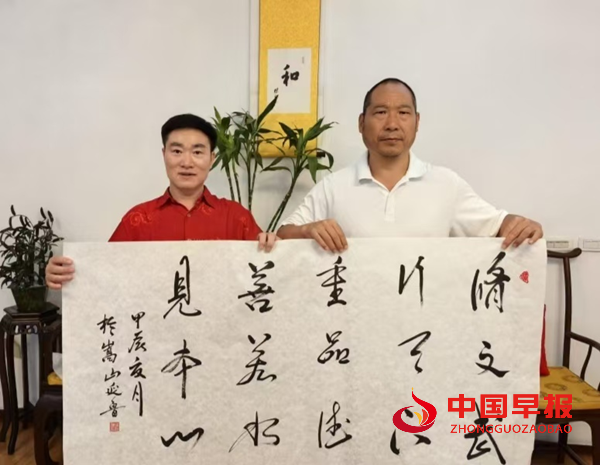 和
脩文武
行天
重品德
善若水
見本心
甲辰夏月
於嵩山延魯
中国早报
ZHONGGUOZAOBAO